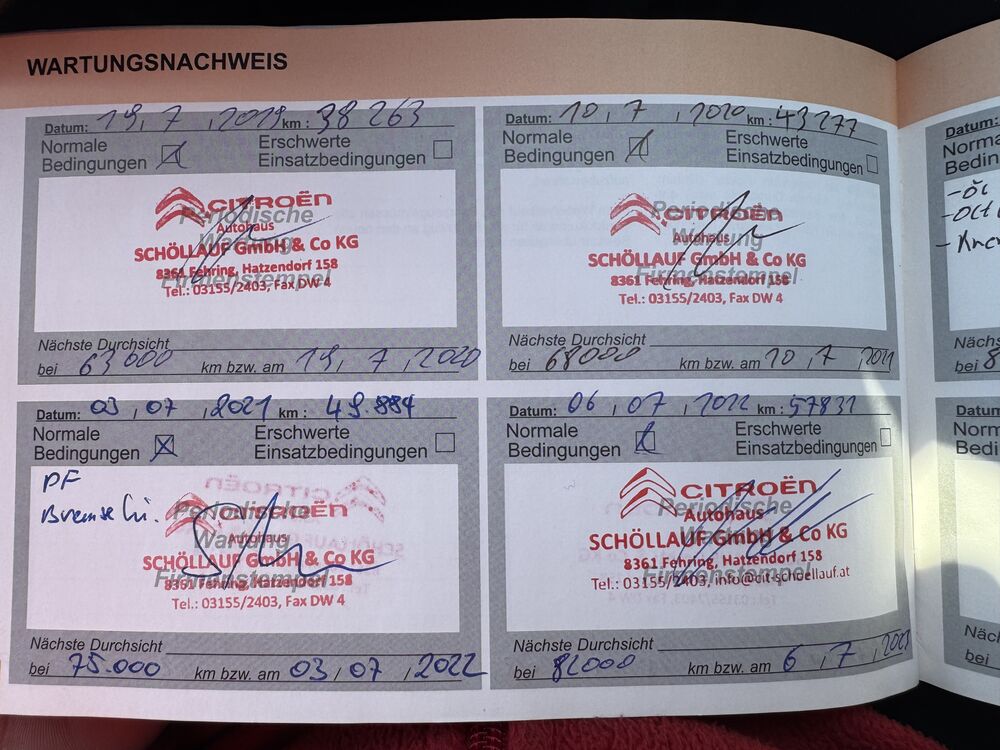 WARTUNGSNACHWEIS
Datum: 19, 7, 2019 km: 38 263
Normale Bedingungen
Erschwerte Einsatzbedingungen
Periodische Wartung
Firmenstempel
CITROËN
Autohaus
SCHÖLLAUF GmbH & Co KG
8361 Fehring, Hatzendorf 158
Tel.: 03155/2403, Fax DW 4
Nächste Durchsicht
bei 63000 km bzw. am 19, 7, 2020
Datum: 10, 7, 2020 km: 43277
Normale Bedingungen
Erschwerte Einsatzbedingungen
Periodische Wartung
Firmenstempel
CITROËN
Autohaus
SCHÖLLAUF GmbH & Co KG
8361 Fehring, Hatzendorf 158
Tel.: 03155/2403, Fax DW 4
Nächste Durchsicht
bei 68000 km bzw. am 10, 7, 2021
Datum: 03, 07, 2021 km: 49.884
Normale Bedingungen
Erschwerte Einsatzbedingungen
PF
Bremse hi.
Periodische Wartung
Firmenstempel
CITROËN
Autohaus
SCHÖLLAUF GmbH & Co KG
8361 Fehring, Hatzendorf 158
Tel.: 03155/2403, Fax DW 4
Nächste Durchsicht
bei 75.000 km bzw. am 03, 07, 2022
Datum: 06, 07, 2022 km: 57831
Normale Bedingungen
Erschwerte Einsatzbedingungen
Periodische Wartung
Firmenstempel
CITROËN
Autohaus
SCHÖLLAUF GmbH & Co KG
8361 Fehring, Hatzendorf 158
Tel.: 03155/2403, info@cit-schoellauf.at
Nächste Durchsicht
bei 82000 km bzw. am 6, 7, 2023
Datum: